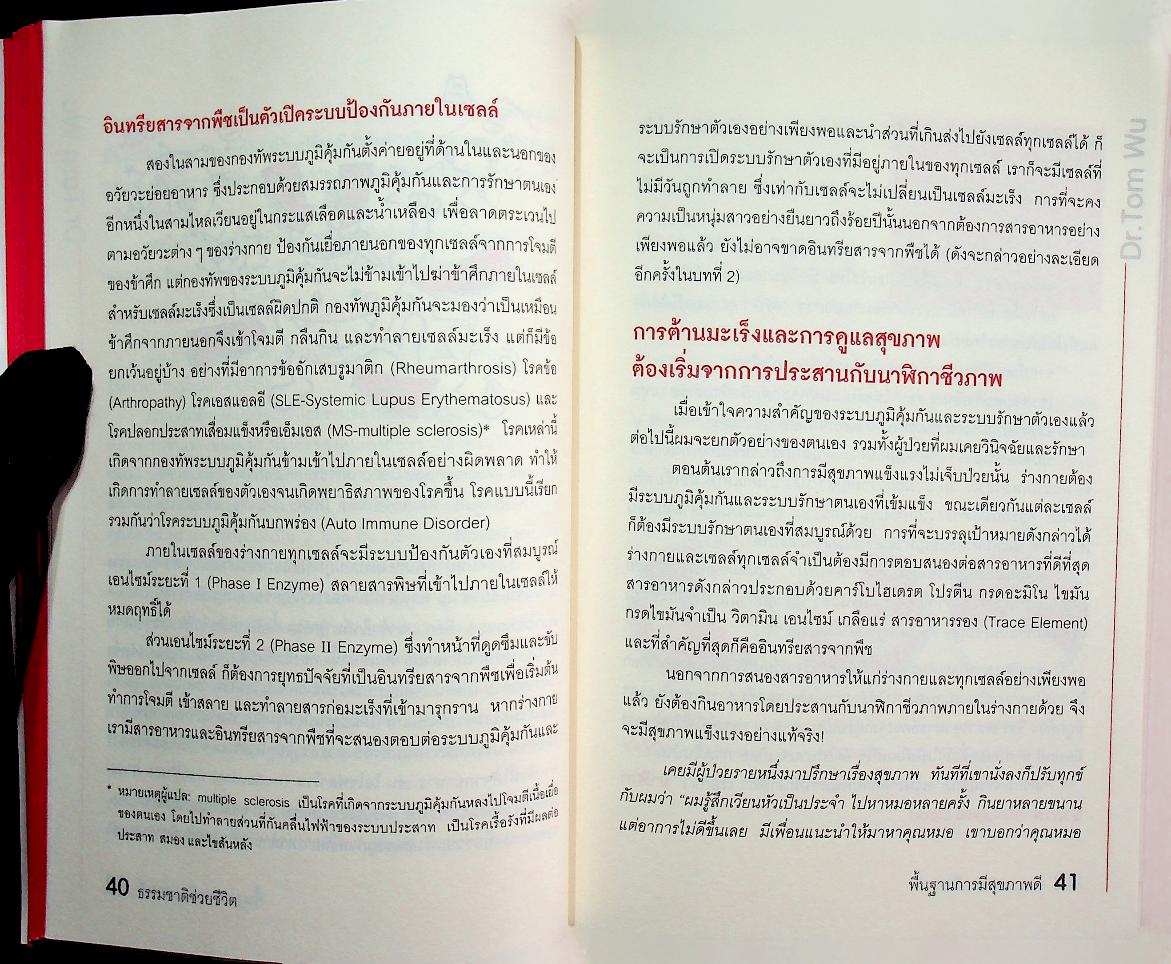 อินทรียสารจากพืชเป็นตัวเปิดระบบป้องกันภายในเซลล์
สองในสามของกองทัพระบบภูมิคุ้มกันตั้งค่ายอยู่ที่ด้านในและนอกของ
อวัยวะย่อยอาหาร ซึ่งประกอบด้วยสมรรถภาพภูมิคุ้มกันและการรักษาตนเอง
อีกหนึ่งในสามไหลเวียนอยู่ในกระแสเลือดและน้ำเหลือง เพื่อลาดตระเวนไป
ตามอวัยวะต่าง ๆ ของร่างกาย ป้องกันเยื่อภายนอกของทุกเซลล์จากการโจมตี
ของข้าศึก แต่กองทัพของระบบภูมิคุ้มกันจะไม่ข้ามเข้าไปฆ่าข้าศึกภายในเซลล์
สำหรับเซลล์มะเร็งซึ่งเป็นเซลล์ผิดปกติ กองทัพภูมิคุ้มกันจะมองว่าเป็นเหมือน
ข้าศึกจากภายนอกจึงเข้าโจมตี กลืนกิน และทำลายเซลล์มะเร็ง แต่ก็มีข้อ
ยกเว้นอยู่บ้าง อย่างที่มีอาการข้ออักเสบรูมาติก (Rheumarthrosis) โรคข้อ
(Arthropathy) โรคเอสแอลอี (SLE-Systemic Lupus Erythematosus) และ
โรคปลอกประสาทเสื่อมแข็งหรือเอ็มเอส (MS-multiple sclerosis)* โรคเหล่านี้
เกิดจากกองทัพระบบภูมิคุ้มกันข้ามเข้าไปภายในเซลล์อย่างผิดพลาด ทำให้
เกิดการทำลายเซลล์ของตัวเองจนเกิดพยาธิสภาพของโรคขึ้น โรคแบบนี้เรียก
รวมกันว่าโรคระบบภูมิคุ้มกันบกพร่อง (Auto Immune Disorder)
ภายในเซลล์ของร่างกายทุกเซลล์จะมีระบบป้องกันตัวเองที่สมบูรณ์
เอนไซม์ระยะที่ 1 (Phase I Enzyme) สลายสารพิษที่เข้าไปภายในเซลล์ให้
หมดฤทธิ์ได้
ส่วนเอนไซม์ระยะที่ 2 (Phase II Enzyme) ซึ่งทำหน้าที่ดูดซึมและขับ
พิษออกไปจากเซลล์ ก็ต้องการยุทธปัจจัยที่เป็นอินทรียสารจากพืชเพื่อเริ่มต้น
ทำการโจมตี เข้าสลาย และทำลายสารก่อมะเร็งที่เข้ามารุกราน หากร่างกาย
เรามีสารอาหารและอินทรียสารจากพืชที่จะสนองตอบต่อระบบภูมิคุ้มกันและ
* หมายเหตุผู้แปล: multiple sclerosis เป็นโรคที่เกิดจากระบบภูมิคุ้มกันหลงไปโจมตีเนื้อเยื่อ
ของตนเอง โดยไปทำลายส่วนที่กันคลื่นไฟฟ้าของระบบประสาท เป็นโรคเรื้อรังที่มีผลต่อ
ประสาท สมอง และไขสันหลัง
40 ธรรมชาติช่วยชีวิต
ระบบรักษาตัวเองอย่างเพียงพอและนำส่วนที่เกินส่งไปยังเซลล์ทุกเซลล์ได้ ก็
จะเป็นการเปิดระบบรักษาตัวเองที่มีอยู่ภายในของทุกเซลล์ เราก็จะมีเซลล์ที่
ไม่มีวันถูกทำลาย ซึ่งเท่ากับเซลล์จะไม่เปลี่ยนเป็นเซลล์มะเร็ง การที่จะคง
ความเป็นหนุ่มสาวอย่างยืนยาวถึงร้อยปีนั้นนอกจากต้องการสารอาหารอย่าง
เพียงพอแล้ว ยังไม่อาจขาดอินทรียสารจากพืชได้ (ดังจะกล่าวอย่างละเอียด
อีกครั้งในบทที่ 2)
การต้านมะเร็งและการดูแลสุขภาพ
ต้องเริ่มจากการประสานกับนาฬิกาชีวภาพ
เมื่อเข้าใจความสำคัญของระบบภูมิคุ้มกันและระบบรักษาตัวเองแล้ว
ต่อไปนี้ผมจะยกตัวอย่างของตนเอง รวมทั้งผู้ป่วยที่ผมเคยวินิจฉัยและรักษา
ตอนต้นเรากล่าวถึงการมีสุขภาพแข็งแรงไม่เจ็บป่วยนั้น ร่างกายต้อง
มีระบบภูมิคุ้มกันและระบบรักษาตนเองที่เข้มแข็ง ขณะเดียวกันแต่ละเซลล์
ก็ต้องมีระบบรักษาตนเองที่สมบูรณ์ด้วย การที่จะบรรลุเป้าหมายดังกล่าวได้
ร่างกายและเซลล์ทุกเซลล์จำเป็นต้องมีการตอบสนองต่อสารอาหารที่ดีที่สุด
สารอาหารดังกล่าวประกอบด้วยคาร์โบไฮเดรต โปรตีน กรดอะมิโน ไขมัน
กรดไขมันจำเป็น วิตามิน เอนไซม์ เกลือแร่ สารอาหารรอง (Trace Element)
และที่สำคัญที่สุดก็คืออินทรียสารจากพืช
นอกจากการสนองสารอาหารให้แก่ร่างกายและทุกเซลล์อย่างเพียงพอ
แล้ว ยังต้องกินอาหารโดยประสานกับนาฬิกาชีวภาพภายในร่างกายด้วย จึง
จะมีสุขภาพแข็งแรงอย่างแท้จริง!
เคยมีผู้ป่วยรายหนึ่งมาปรึกษาเรื่องสุขภาพ ทันทีที่เขานั่งลงก็ปรับทุกข์
กับผมว่า "ผมรู้สึกเวียนหัวเป็นประจำ ไปหาหมอหลายครั้ง กินยาหลายขนาน
แต่อาการไม่ดีขึ้นเลย มีเพื่อนแนะนำให้มาหาคุณหมอ เขาบอกว่าคุณหมอ
พื้นฐานการมีสุขภาพดี 41
Dr.Tom Wu